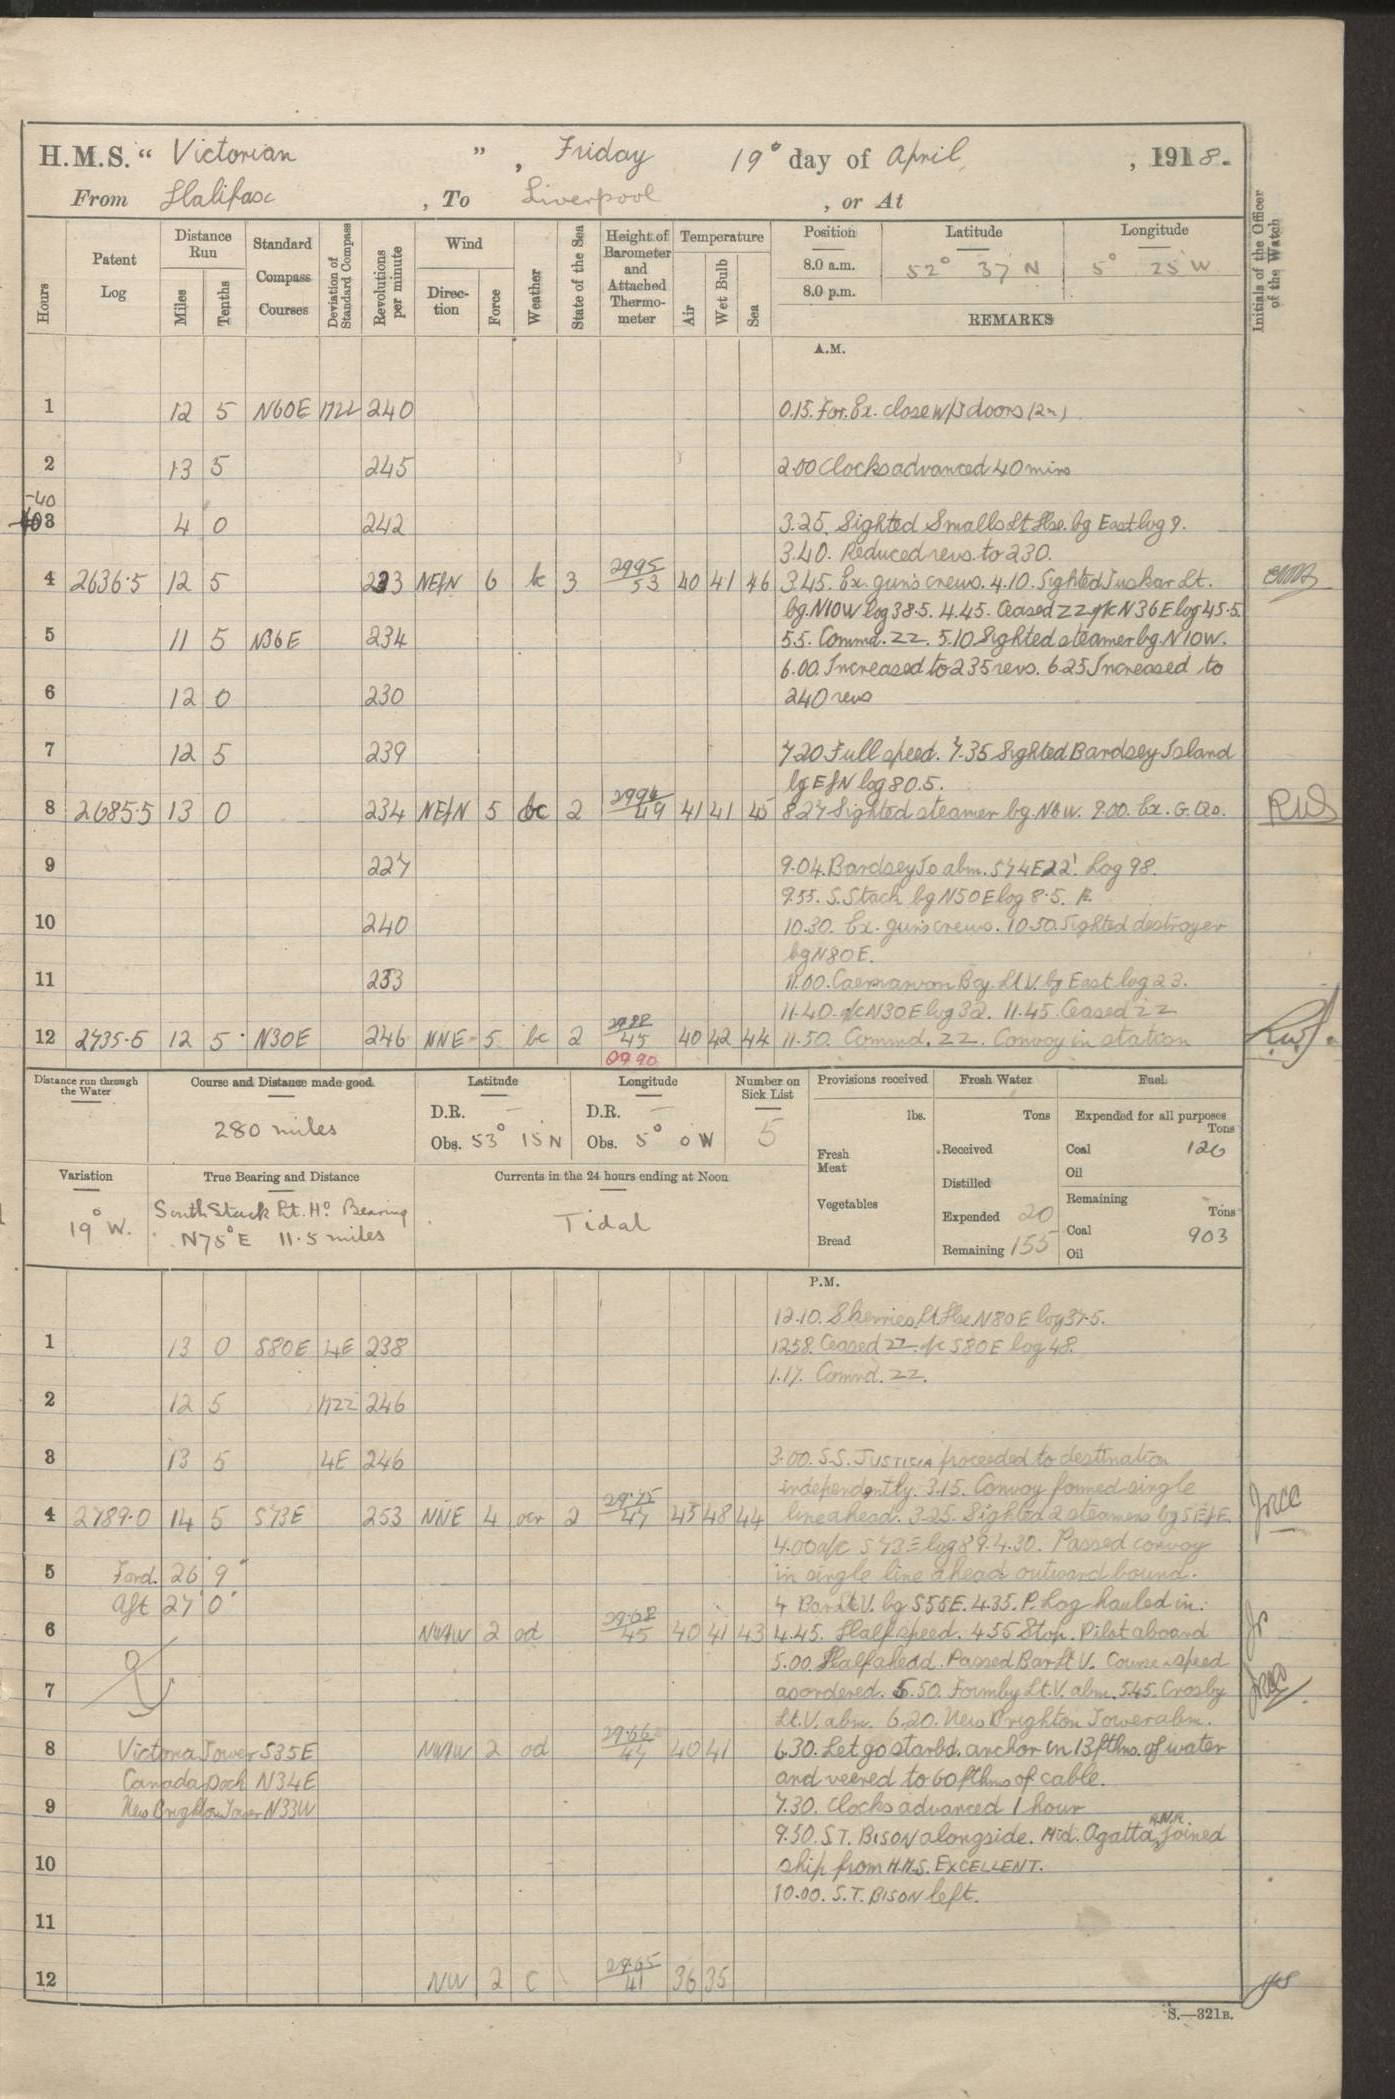 H.M.S. “ Victorian ” , Friday 19° day of April , 1918.
From Halifax , To Liverpool , or At
Hours
Patent Log
Distance Run
Miles
Tenths
Standard Compass Courses
Deviation of Standard Compass
Revolutions per minute
Wind
Direction
Force
Weather
State of the Sea
Height of Barometer and Attached Thermometer
Temperature
Air
Wet Bulb
Sea
Position
Latitude
Longitude
8.0 a.m. 52° 37' N 5° 25' W
8.0 p.m.
REMARKS
Initials of the Officer of the Watch
A.M.
1 12 5 N60E 1722 240 0.15. For. Ex. close W/T doors (2n)
2 13 5 245 2.00 Clocks advanced 40 mins
-40
3 4 0 242 3.25. Sighted Smalls Lt Hse. bg East log 9.
3.40. Reduced revs. to 230.
4 2636.5 12 5 233 NE/N 6 bc 3 2995/53 40 41 46 3.45. Ex. gun's crews. 4.10. Sighted Tuskar Lt.
bg. N10W log 38.5. 4.45. Ceased ZZ a/c N36E log 45.5.
5 11 5 N36E 234 5.5. Commd. ZZ. 5.10 Sighted steamer bg. N10W.
6.00. Increased to 235 revs. 6.25 Increased to
6 12 0 230 240 revs
7 12 5 239 7.20 Full speed. 7.35 Sighted Bardsey Island
bg E/N log 80.5.
8 2685.5 13 0 234 NE/N 5 bc 2 2996/49 41 41 45 8.27 Sighted steamer bg. N6W. 9.00. Ex. G. Qrs. RWS
9 227 9.04. Bardsey Is abm. S74E 22'. Log 98.
9.55. S. Stack bg N50E log 8.5.
10 240 10.30. Ex. gun's crews. 10.50. Sighted destroyer
bg N80E.
11 233 11.00. Caernarvon Bay Lt V. bg East log 23.
11.40. a/c N30E log 32. 11.45. Ceased ZZ
12 2735.5 12 5 N30E 246 NNE 5 bc 2 2988/45 40 42 44 11.50. Commd. ZZ. Convoy in station
0990
Distance run through the Water
Course and Distance made good
280 miles
Latitude
D.R. —
Obs. 53° 15' N
Longitude
D.R. —
Obs. 5° 0' W
Number on Sick List
5
Provisions received
lbs.
Fresh Meat
Vegetables
Bread
Fresh Water
Tons
Received
Distilled
Expended 20
Remaining 155
Fuel
Expended for all purposes
Tons
Coal 126
Oil
Remaining
Tons
Coal 903
Oil
Variation
19° W.
True Bearing and Distance
South Stack Lt. Ho. Bearing
N75°E 11.5 miles
Currents in the 24 hours ending at Noon
Tidal
P.M.
12.10. Skerries Lt Hse N80E log 37.5.
1 13 0 S80E 4E 238 12.58. Ceased ZZ. a/c S80E log 48.
1.17. Commd. ZZ.
2 12 5 1722 246
3 13 5 4E 246 3.00. S.S. JUSTICIA proceeded to destination
independently. 3.15. Convoy formed single
4 2789.0 14 5 S73E 253 NNE 4 ocr 2 29.75/47 45 48 44 line ahead. 3.25. Sighted 2 steamers bg SE/E.
4.00 a/c S73E log 89. 4.30. Passed convoy
5 Ford. 26' 9" in single line ahead outward bound.
Aft 27' 0" & Bar Lt V. bg S55E. 4.35. P. Log hauled in.
6 NW/W 2 od 29.68/45 40 41 43 4.45. Half speed. 4.55 Stop. Pilot aboard
5.00. Half ahead. Passed Bar Lt V. Course & speed
7 as ordered. 5.50. Formby Lt. V. abm. 5.45. Crosby
Lt. V. abm. 6.20. New Brighton Tower abm.
8 Victoria Tower S35E NW/W 2 od 29.66/47 40 41 6.30. Let go starbd. anchor in 13 fthms. of water
Canada Dock N34E and veered to 60 fthms of cable.
9 New Brighton Tower N33W 7.30. Clocks advanced 1 hour
9.50. S.T. BISON alongside. Mid. Agatta, R.N.R. joined
10 ship from H.M.S. EXCELLENT.
10.00. S.T. BISON left.
11
12 NW 2 c 29.65/41 36 35
S.—321B.